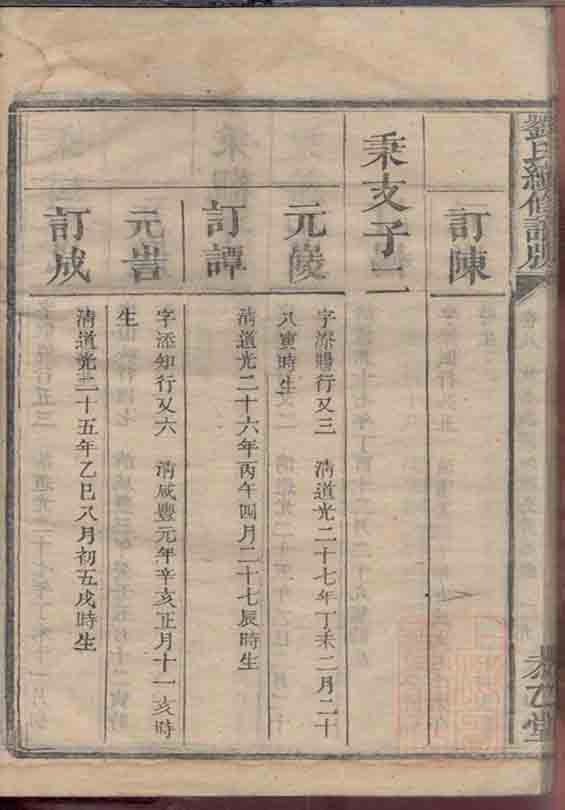 劉氏續修譜牒
訂陳
秉支子二
元崚
字添賜行又三 清道光二十七年丁未二月二十
八寅時生
訂譚
清道光二十六年丙午四月二十七辰時生
元旹
字添知行又六 清咸豐元年辛亥正月十一亥時
生
訂成
清道光二十五年乙巳八月初五戌時生